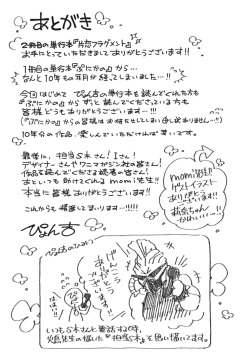 あとがき
2冊目の単行本『片恋フラグメント』
お手にとっていただきましてありがとうございます!!
1冊目の単行本『ぷにかの』から…
なんと10年もの年月が経ってしまいました…!!
今回はじめて ぴょん吉の単行本を読んでくれた方も
『ぷにかの』から ずっと読んでくださっている方も
皆様どうもありがとうございます…!!!
10年分の作品、楽しんでいただければ幸いです。
最後に、担当S本さん!Iさん!
デザイナーさんやワニマガジン社の皆さん!
作品を読んでくださる読者の皆さん!
あといつも助けてくれるmomi先生!!
本当に皆様ありがとうございます!
これからも頑張ってまいります…!!!!
ぴょん吉
momi先生!!
ゲストイラスト
ありがとう
ございます!!!
かわいい…!!
いつもS本さんと電話する時、
先生の描いた『担当S本』を思い描いてます。